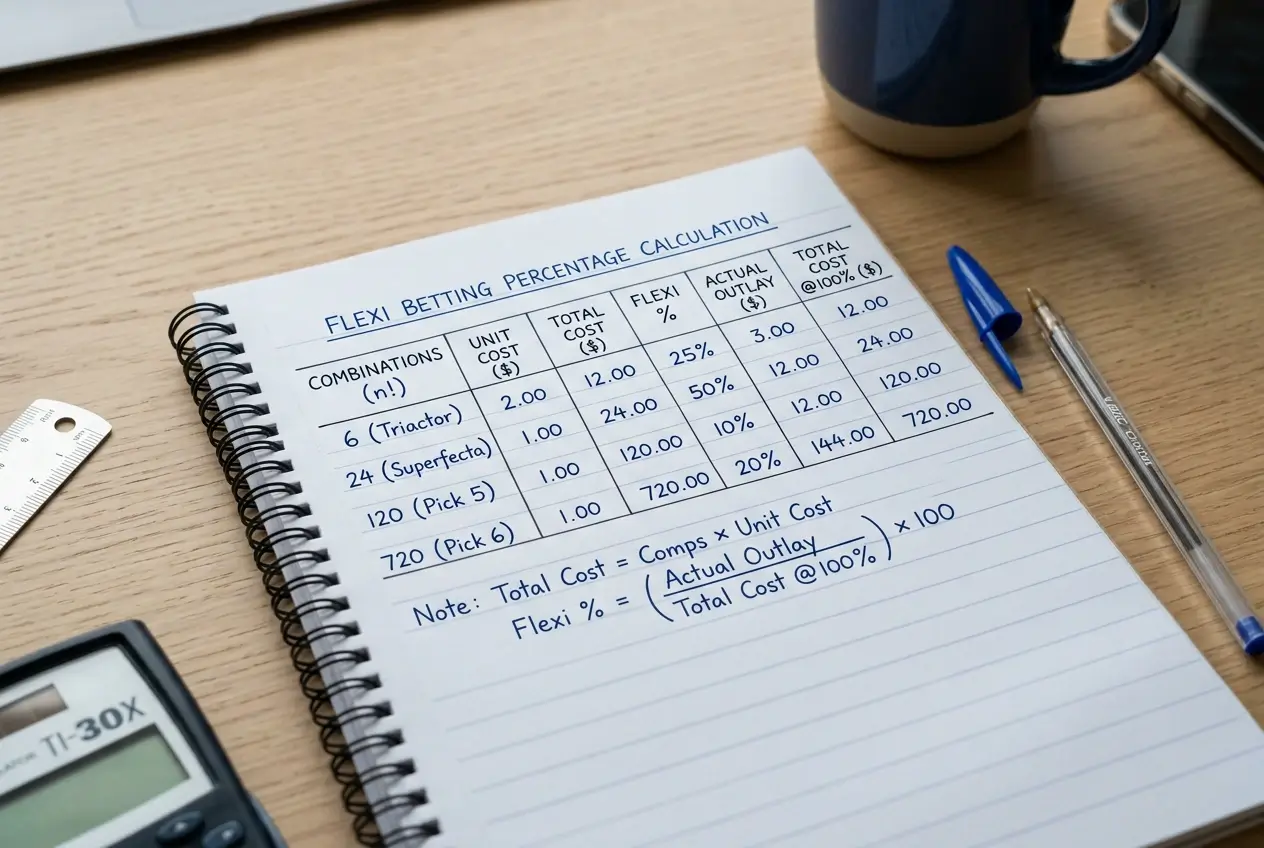 FLEXI BETTING PERCENTAGE CALCULATION
COMBINATIONS (n!) UNIT COST ($) TOTAL COST ($) FLEXI % ACTUAL OUTLAY ($) TOTAL COST @100% ($)
6 (Triactor) 2.00 12.00 25% 3.00 12.00
24 (Superfecta) 1.00 24.00 50% 12.00 24.00
120 (Pick 5) 1.00 120.00 10% 12.00 120.00
720 (Pick 6) 1.00 720.00 20% 144.00 720.00
Note: Total Cost = Comps x Unit Cost
Flexi % = (Actual Outlay / Total Cost @100%) x 100
TI-30X